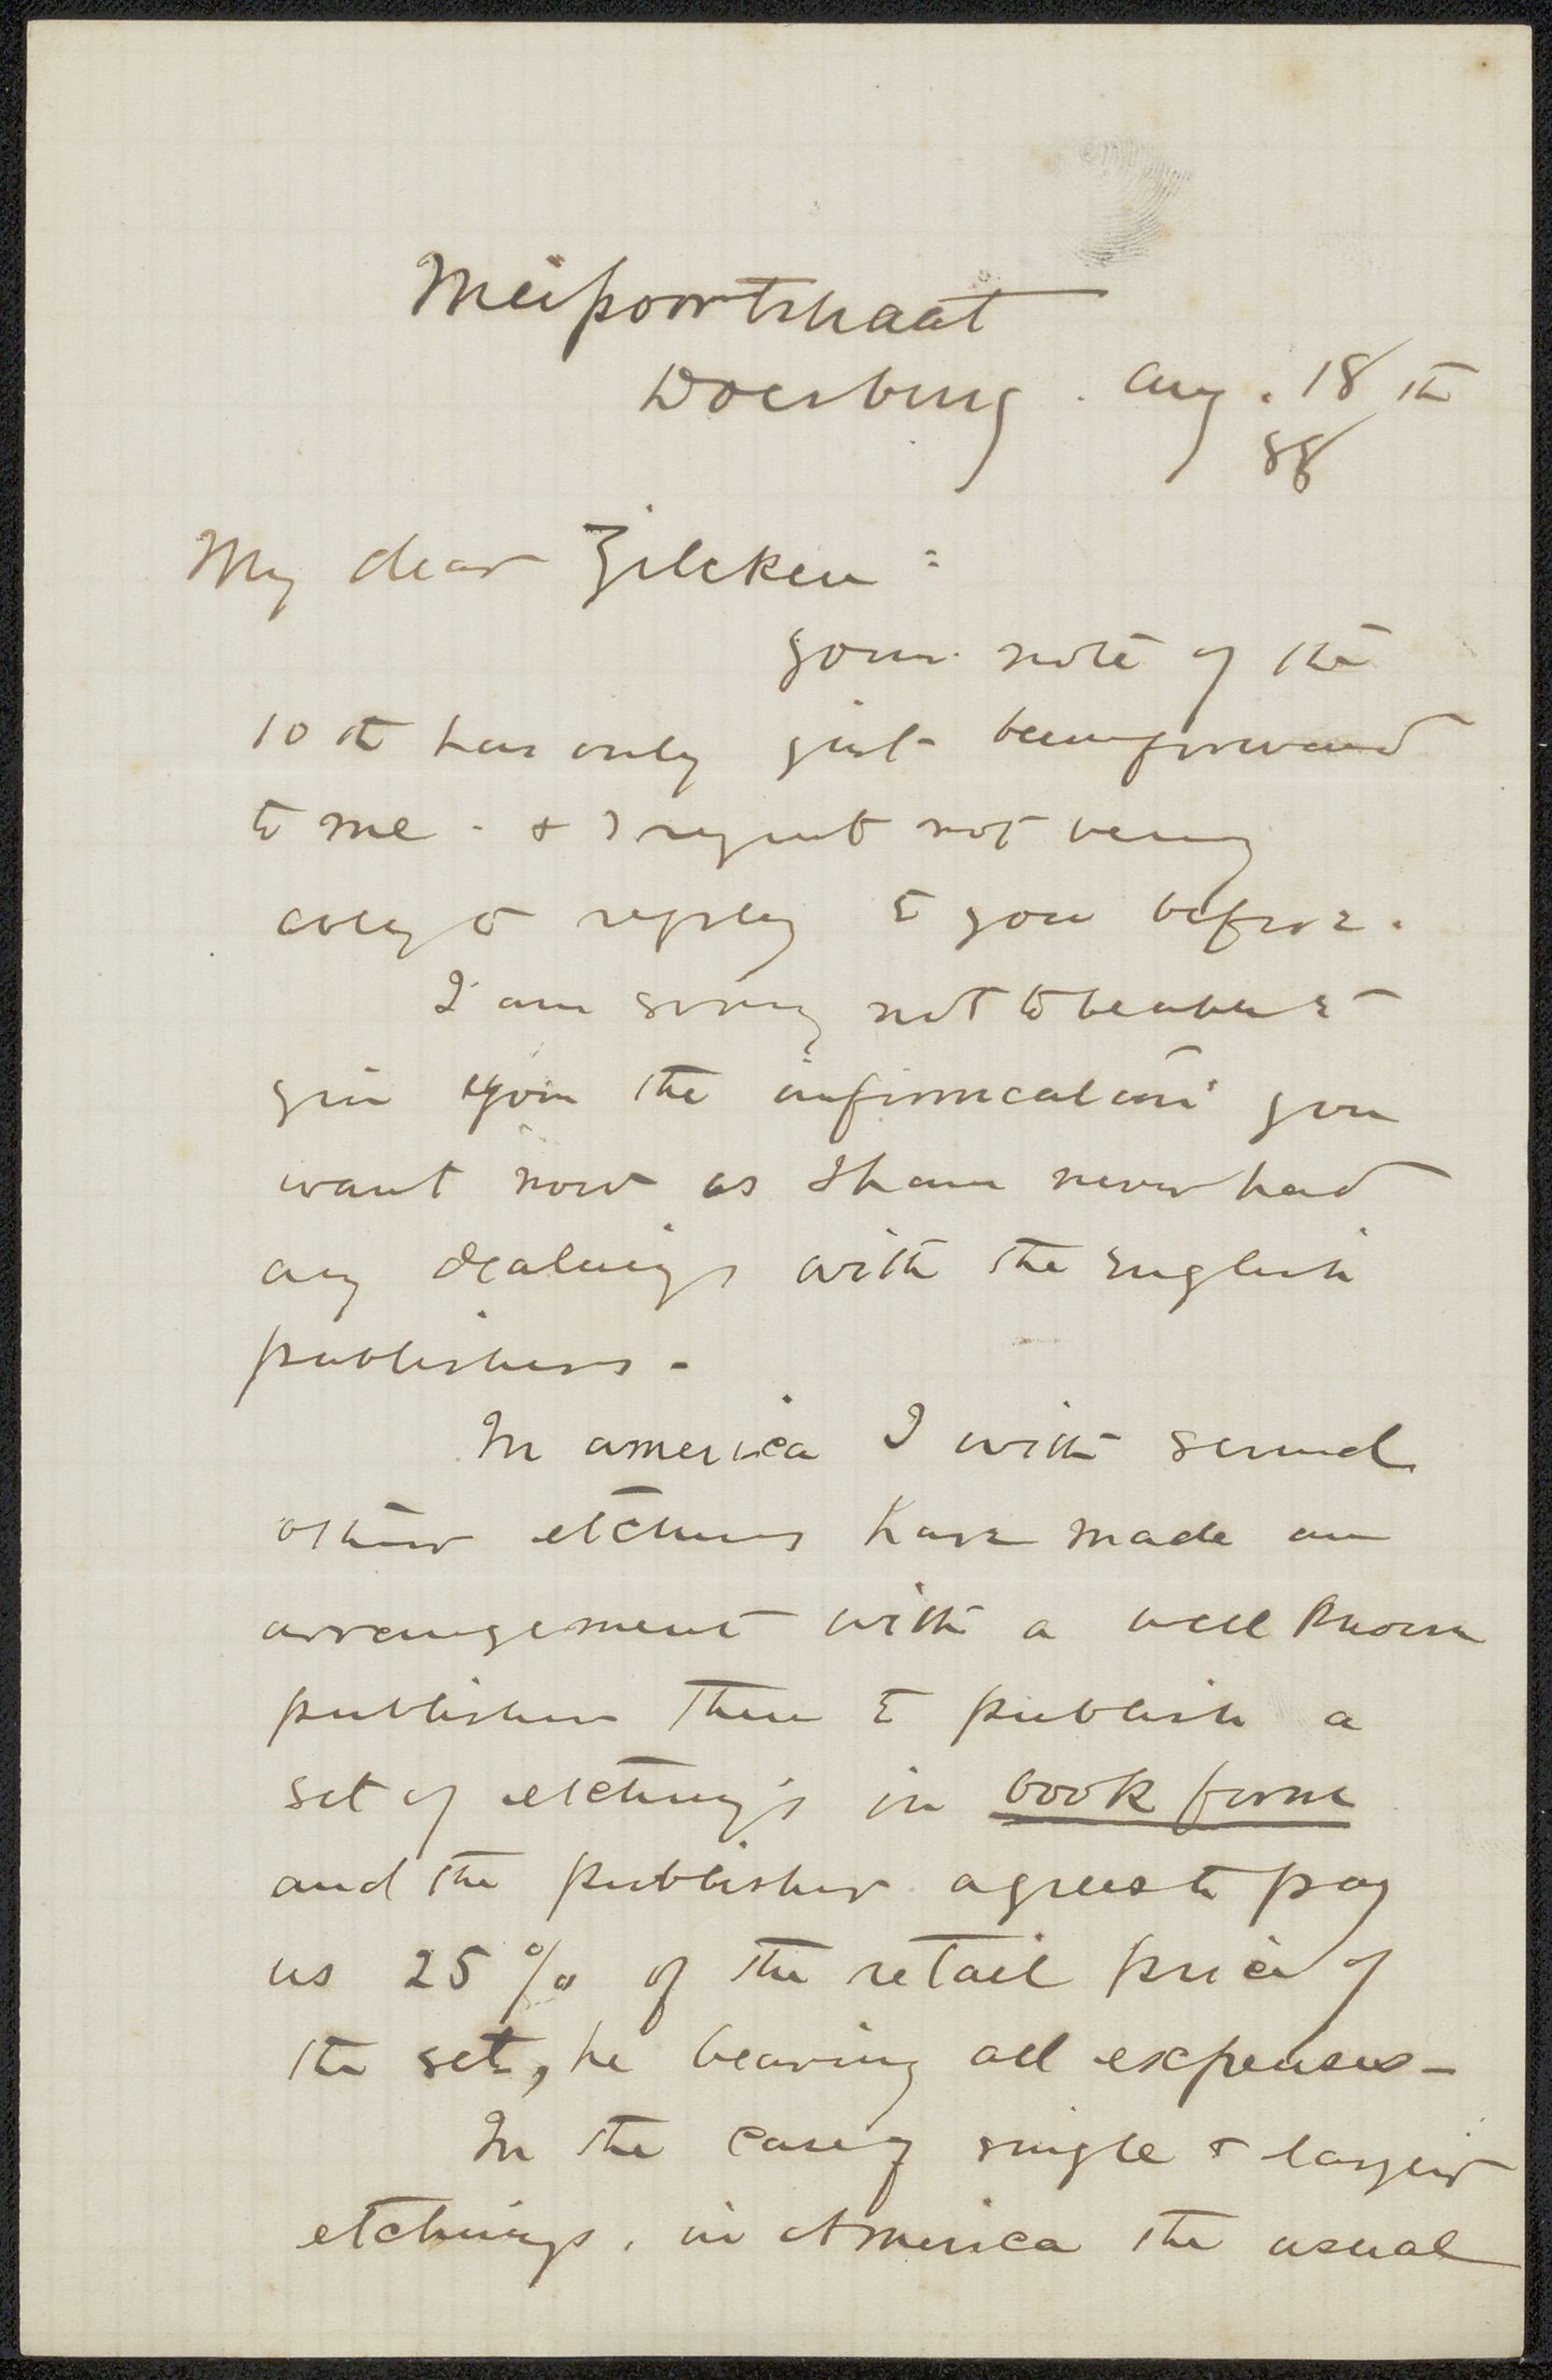 Meipoortstraat
Doesburg. Aug. 18th
88
My dear Zilcken:
your note of the
10th has only just been forward
to me. & I regret not being
able to reply to you before.
I am sorry not to be able to
give you the information you
want now as I have never had
any dealings with the English
publishers.-
In America I with several
other etchers have made an
arrangement with a well known
publisher there to publish a
set of etchings in book form
and the publisher agrees to pay
us 25% of the retail price of
the set, he bearing all expenses-
In the case of single & larger
etchings, in America the usual